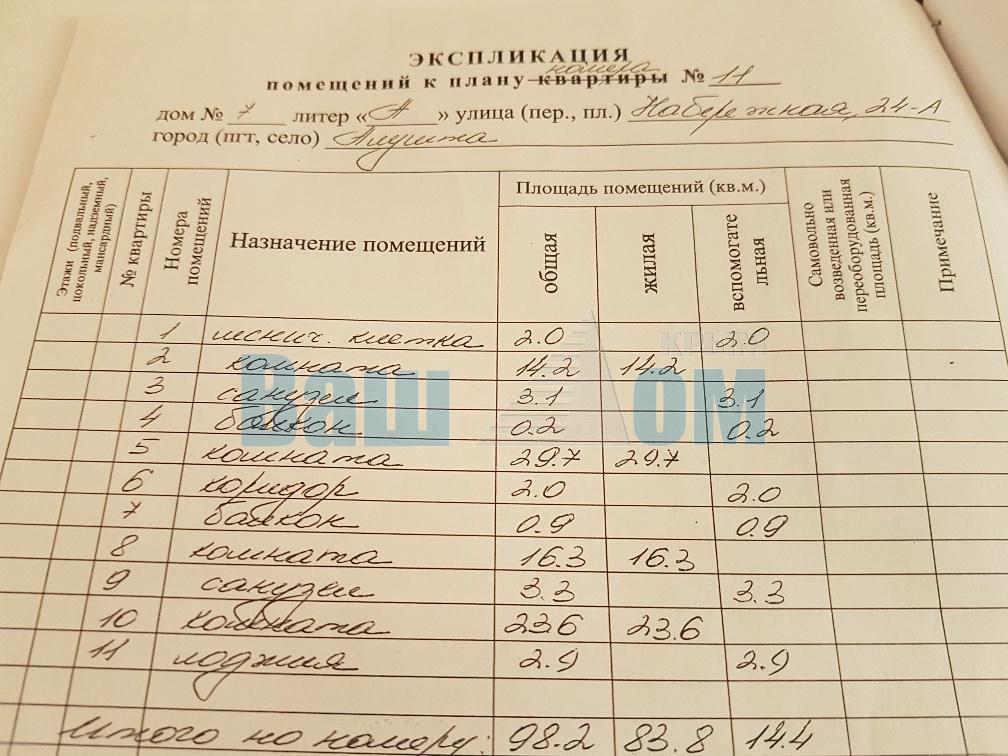 ЭКСПЛИКАЦИЯ
номера
помещений к плану квартиры № 11
дом № 7 литер «А» улица (пер., пл.) Набережная, 24-А
город (пгт, село) Алушта
Этажи (подвальный, цокольный, надземный, мансардный) № квартиры Номера помещений Назначение помещений Площадь помещений (кв.м.) Самовольно возведенная или переоборудованная площадь (кв.м.) Примечание
общая жилая вспомогательная
1 лестнич. клетка 2.0 2.0
2 комната 14.2 14.2
3 санузел 3.1 3.1
4 балкон 0.2 0.2
5 комната 29.7 29.7
6 коридор 2.0 2.0
7 балкон 0.9 0.9
8 комната 16.3 16.3
9 санузел 3.3 3.3
10 комната 236 23.6
11 лоджия 2.9 2.9
Итого по номеру: 98.2 83.8 14.4
Ваш Дом
КРЫМ